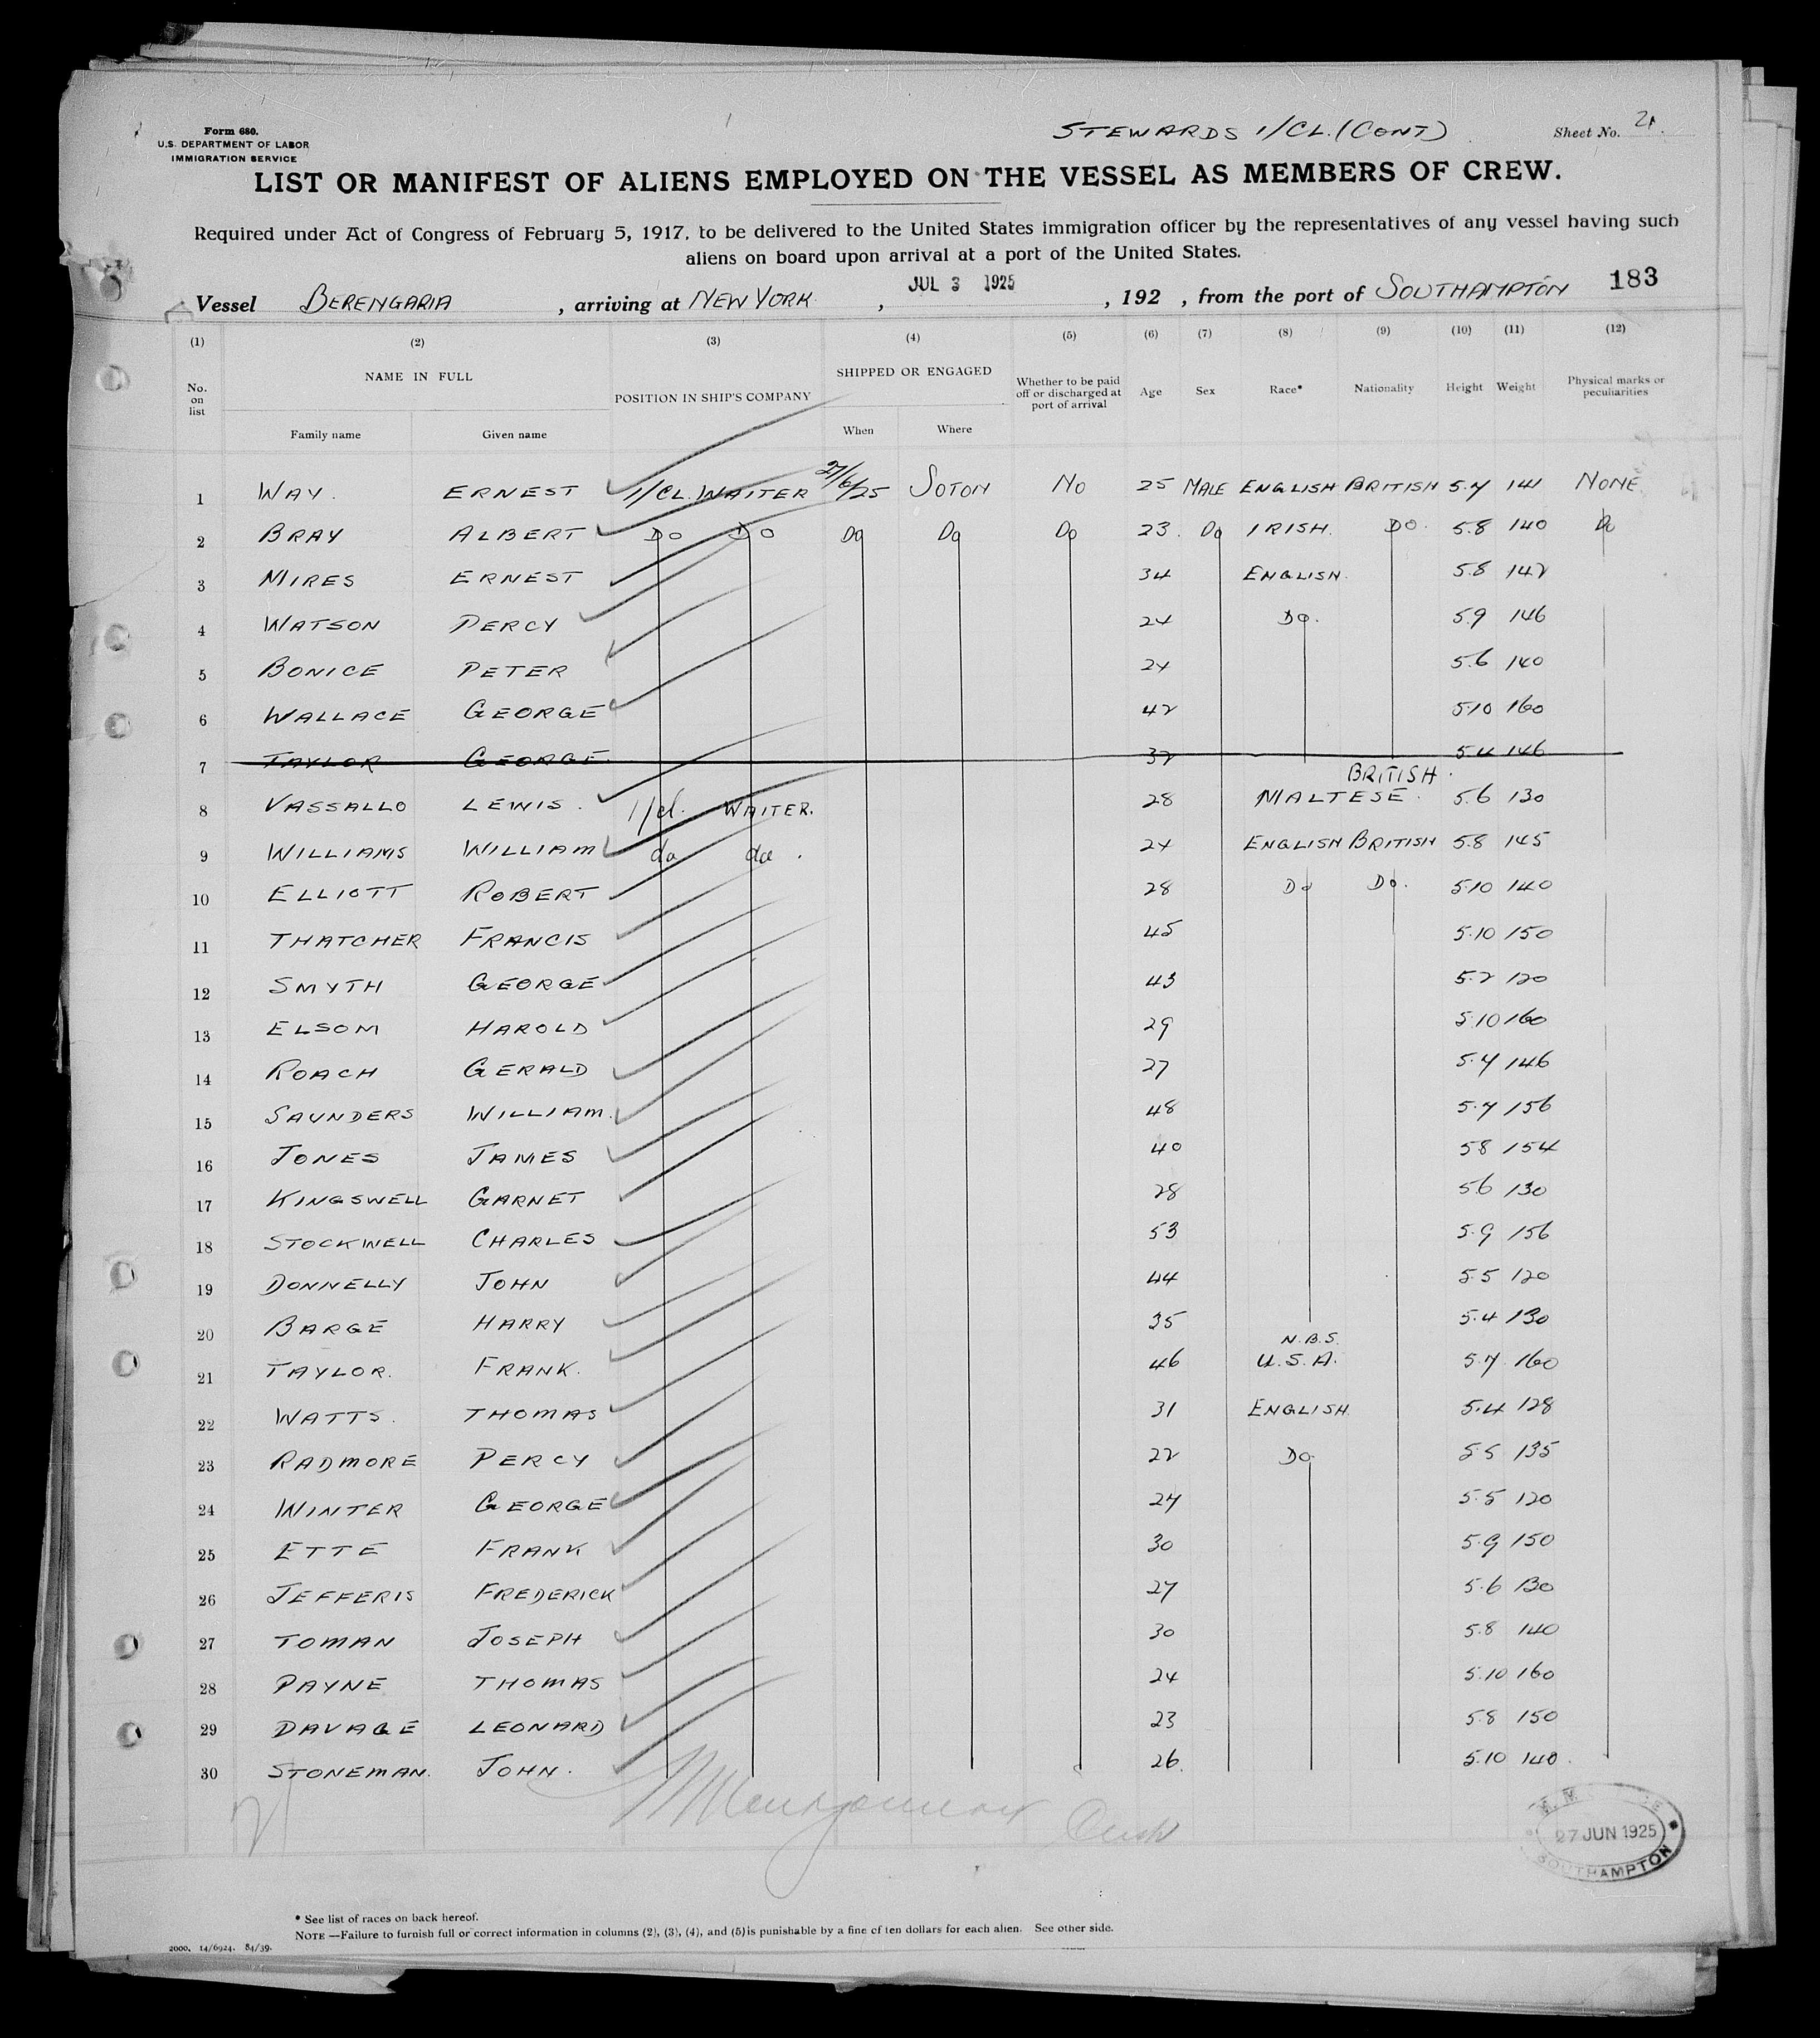 STEWARDS 1/CL. (CONT)
Sheet No. 21.
Form 680.
U.S. DEPARTMENT OF LABOR
IMMIGRATION SERVICE
LIST OR MANIFEST OF ALIENS EMPLOYED ON THE VESSEL AS MEMBERS OF CREW.
Required under Act of Congress of February 5, 1917, to be delivered to the United States immigration officer by the representatives of any vessel having such
aliens on board upon arrival at a port of the United States.
Vessel BERENGARIA , arriving at NEW YORK , JUL 3 1925 , 192 , from the port of SOUTHAMPTON 183
(1) (2) (3) (4) (5) (6) (7) (8) (9) (10) (11) (12)
No. on list NAME IN FULL POSITION IN SHIP'S COMPANY SHIPPED OR ENGAGED Whether to be paid off or discharged at port of arrival Age Sex Race* Nationality Height Weight Physical marks or peculiarities
Family name Given name When Where
1 WAY. ERNEST 1/CL. WAITER 27/6/25 SOTON NO 25 MALE ENGLISH BRITISH 5.7 141 NONE
2 BRAY ALBERT DO DO DO DO DO 23. DO IRISH. DO. 5.8 140 DO
3 MIRES ERNEST 34 ENGLISH. 5.8 142
4 WATSON PERCY 24 DO. 5.9 146
5 BONICE PETER 24 5.6 140
6 WALLACE GEORGE 42 5.10 160
7 TAYLOR GEORGE. 32 5.4 146
8 VASSALLO LEWIS. 1/cl. WAITER. 28 MALTESE. BRITISH. 5.6 130
9 WILLIAMS WILLIAM do do. 24 ENGLISH BRITISH 5.8 145
10 ELLIOTT ROBERT 28 DO DO. 5.10 140
11 THATCHER FRANCIS 45 5.10 150
12 SMYTH GEORGE 43 5.2 120
13 ELSOM HAROLD 29 5.10 160
14 ROACH GERALD 27 5.7 146
15 SAUNDERS WILLIAM. 48 5.7 156
16 JONES JAMES 40 5 8 154
17 KINGSWELL GARNET 28 5 6 130
18 STOCKWELL CHARLES 53 5.9 156
19 DONNELLY JOHN 44 5.5 120
20 BARGE HARRY 35 5.4 130
21 TAYLOR. FRANK. 46 N.B.S. U.S.A. 5.7. 160
22 WATTS. THOMAS 31 ENGLISH. 5.4 128
23 RADMORE PERCY 22 DO. 5.5 135
24 WINTER GEORGE 24 5.5 120
25 ETTE FRANK 30 5.9 150
26 JEFFERIS FREDERICK 27 5.6 130
27 TOMAN JOSEPH 30 5.8 140
28 PAYNE THOMAS 24 5.10 160
29 DAVAGE LEONARD 23 5.8 150
30 STONEMAN. JOHN. 26. 5.10 140.
27 JUN 1925
SOUTHAMPTON
* See list of races on back hereof.
NOTE —Failure to furnish full or correct information in columns (2), (3), (4), and (5) is punishable by a fine of ten dollars for each alien. See other side.
2000. 14/6924. 84/39.